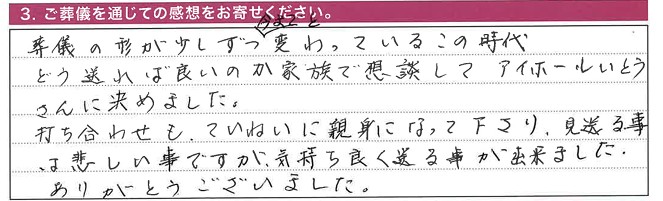 3. ご葬儀を通じての感想をお寄せください。
葬儀の形が少しずつ変わっているこの時代
どう送れば良いのか家族で想談して アイホールいとう
さんに決めました。
打ち合わせも、ていねいに親身になって下さり、見送る事
は悲しい事ですが、気持ち良く送る事が出来ました。
ありがとうございました。